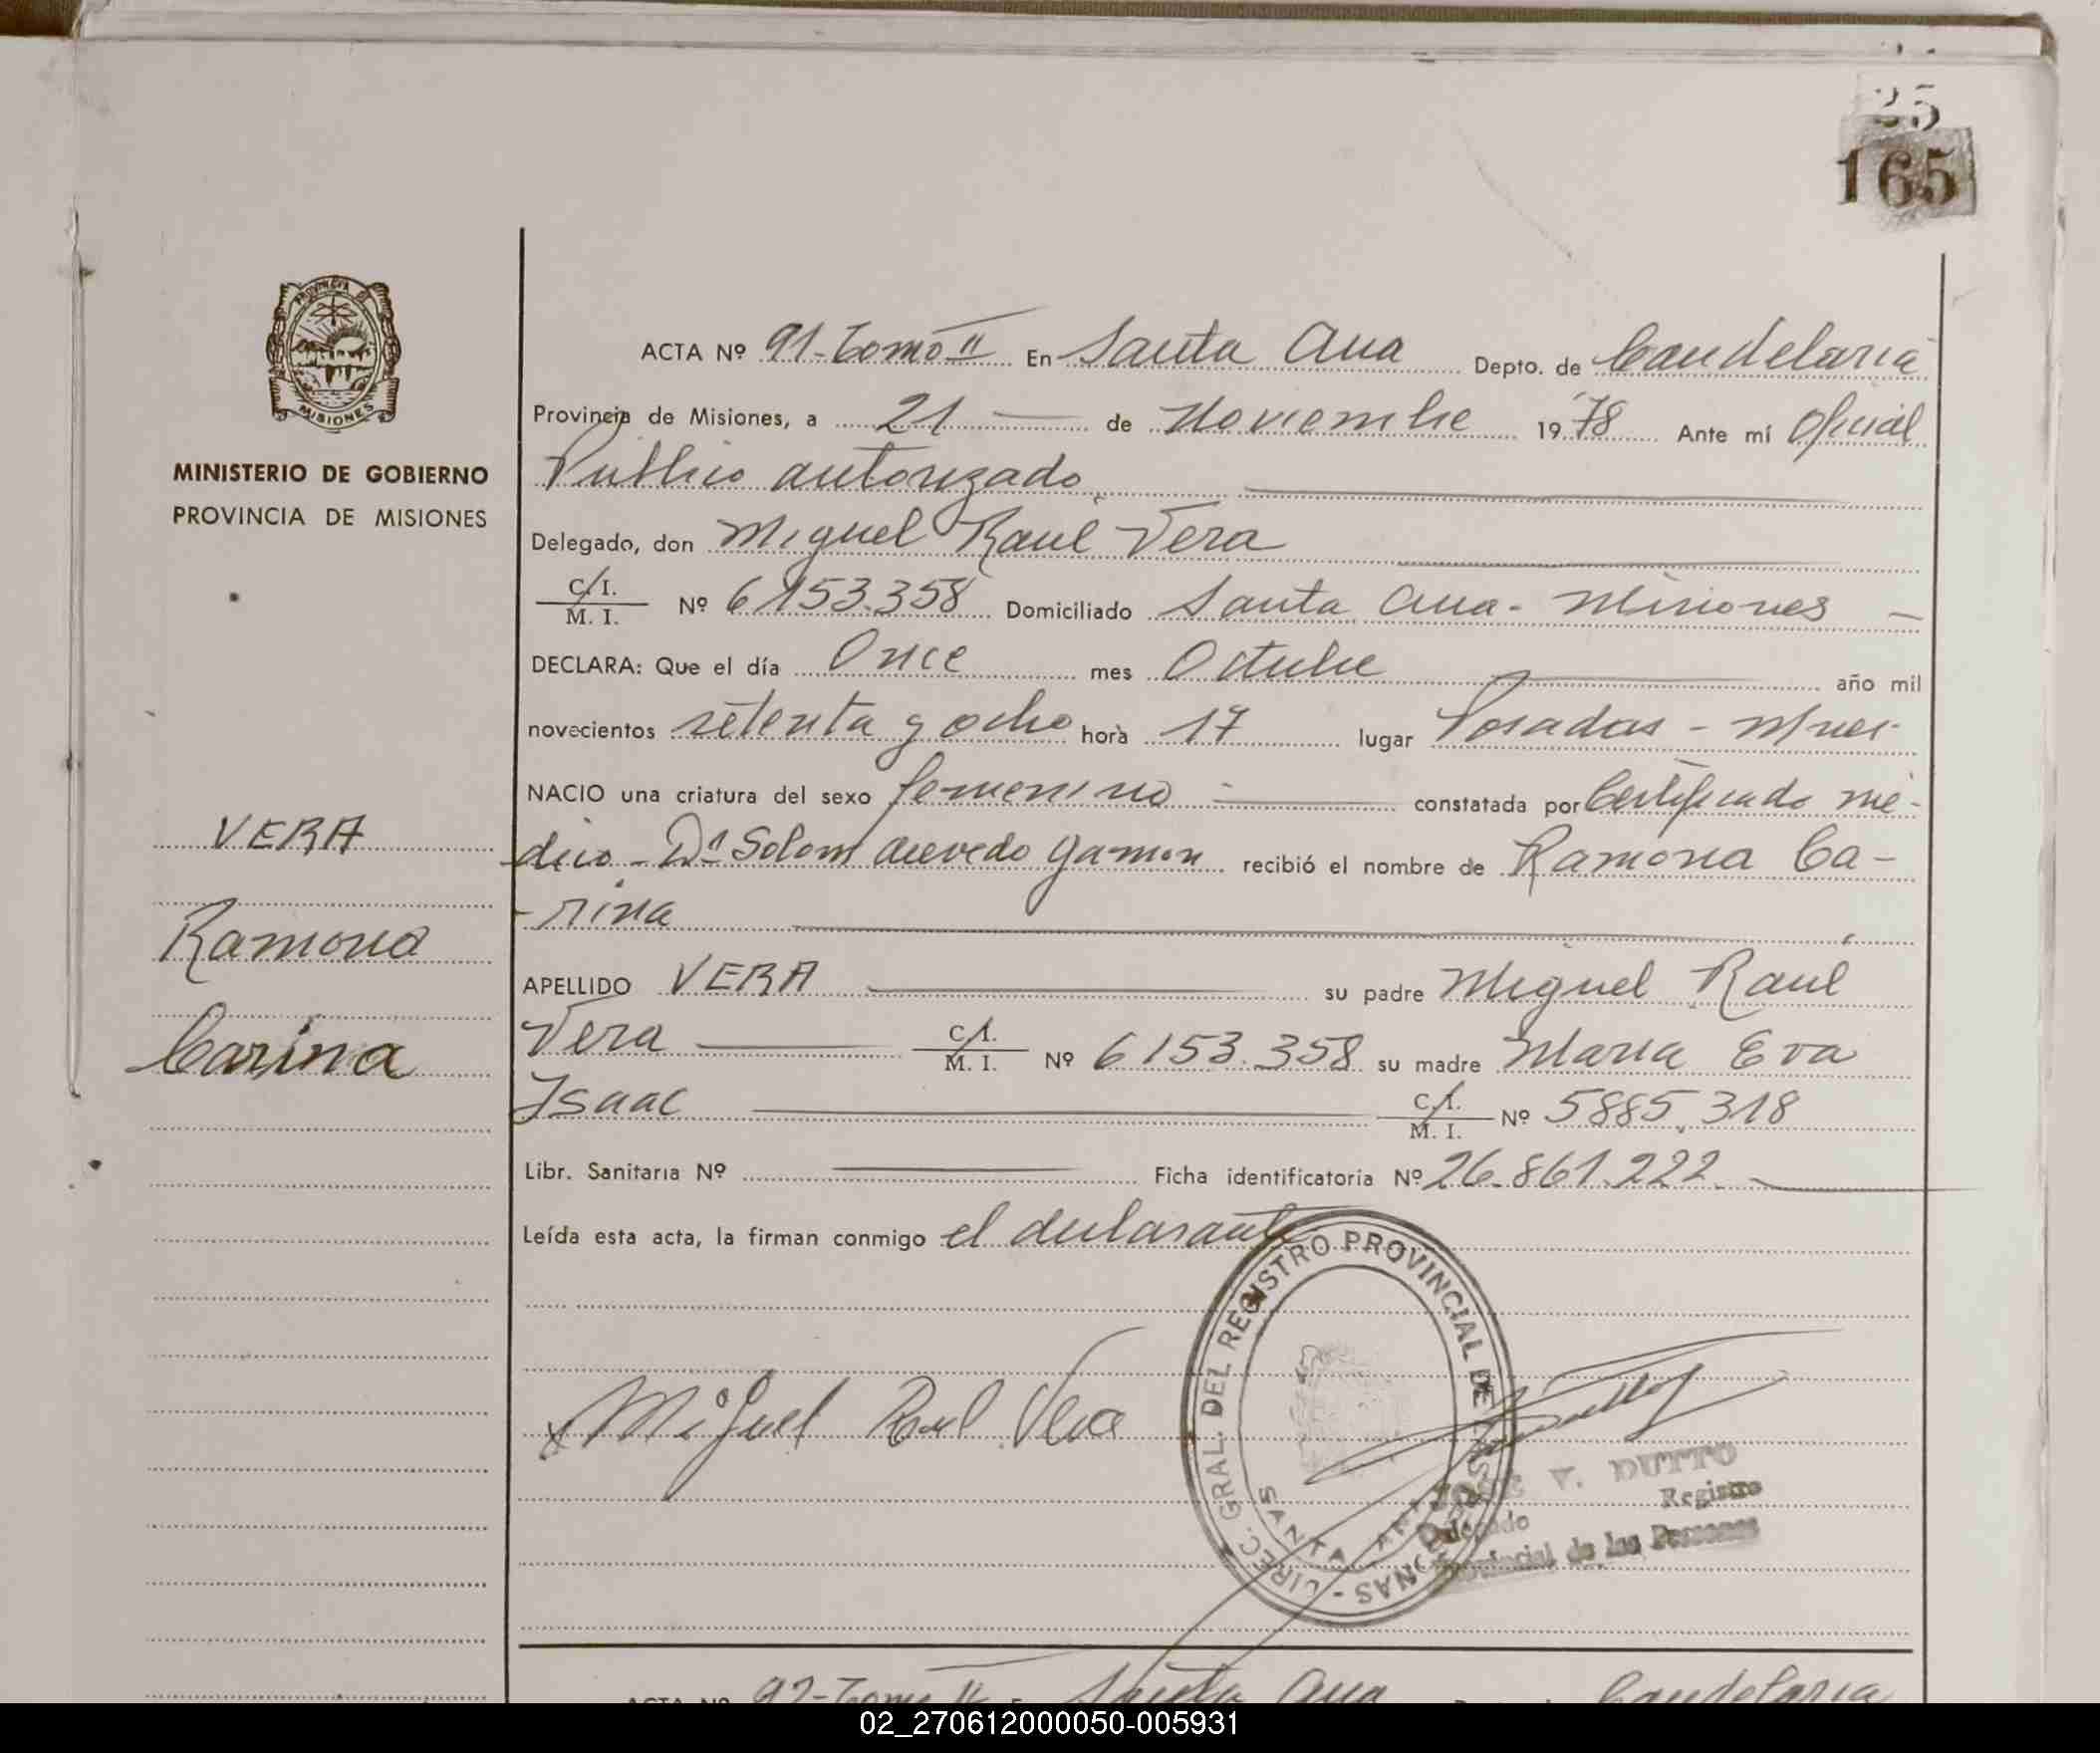 25
165
PROVINCIA DE
MISIONES
MINISTERIO DE GOBIERNO
PROVINCIA DE MISIONES
VERA
Ramona
Carina
ACTA Nº 91-Tomo II En Santa Ana Depto. de Candelaria
Provincia de Misiones, a 21 de Noviembre 1978 Ante mí Oficial
Publico autorizado
Delegado, don Miguel Raul Vera
C/I. M. I. Nº 6153.358 Domiciliado Santa Ana - Misiones
DECLARA: Que el día Once mes Octubre año mil
novecientos setenta y ocho hora 17 lugar Posadas - Mnes.
NACIO una criatura del sexo femenino constatada por Certificado mé-
dico - Acevedo recibió el nombre de Ramona Ca-
- rina
APELLIDO VERA su padre Miguel Raul
Vera C/I. M. I. Nº 6153.358 su madre Maria Eva
Isaac C/I. M. I. Nº 5885.318
Libr. Sanitaria Nº Ficha identificatoria Nº 26.861.222
Leída esta acta, la firman conmigo el declarante
Miguel Raul Vera
DIREC. GRAL. DEL REGISTRO PROVINCIAL DE LAS PERSONAS -
SANTA ANA
JOSE V. DUTTO
Delegado Registro
Provincial de las Personas
ACTA Nº 92-Tomo II En Santa Ana Candelaria
02_270612000050-005931